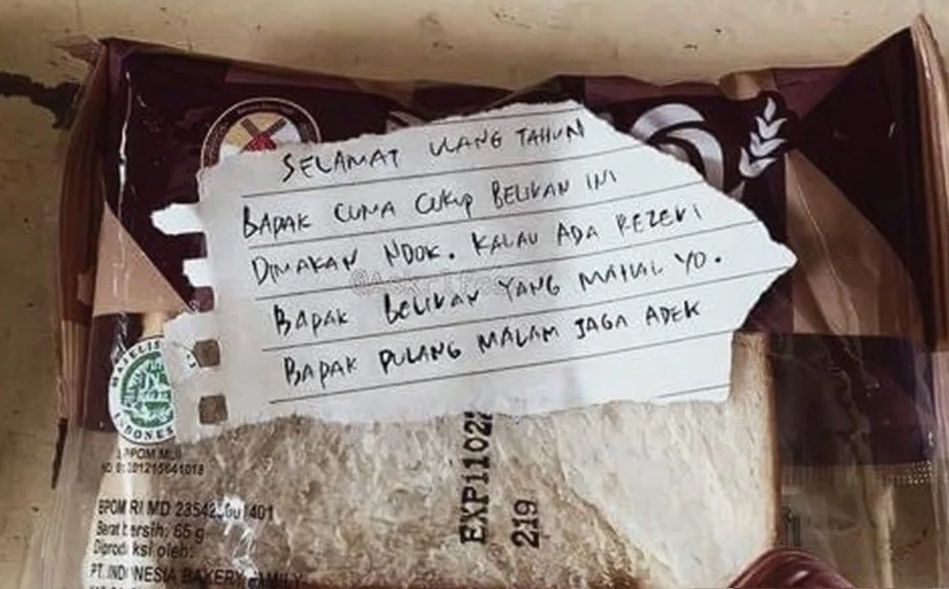 SELAMAT ULANG TAHUN
BAPAK CUMA CUKUP BELIKAN INI
DIMAKAN NDOK. KALAU ADA REZEKI
BAPAK BELIKAN YANG MAHAL YO.
BAPAK PULANG MALAM JAGA ADEK
MAJELIS
INDONES
BPOM RI MD
Berat bersih: 65 g
Diproduksi oleh:
PT. INDONESIA BAKERY FAMILY
EXP11022
219